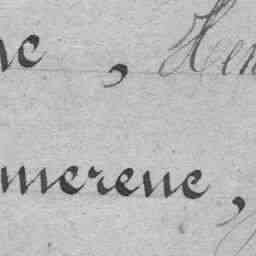 ne, Hen
merene,